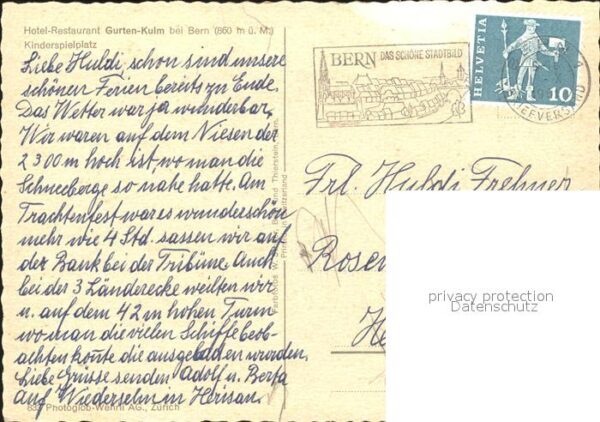 Hotel-Restaurant Gurten-Kulm bei Bern (860 m ü. M.)
Kinderspielplatz
Liebe Huldi schon sind unsere
schönen Ferien bereits zu Ende.
Das Wetter war ja wunderbar,
Wir waren auf dem Niesen der
2300 m hoch ist, wo man die
Schneeberge so nahe hatte. Am
Trachtenfest war es wunderschön
mehr wie 4 Std. sassen wir auf
der Bank bei der Tribüne. Auch
bei der 3 Länderecke weilten wir
u. auf dem 42 m hohen Turm
wo man die vielen Schiffe beob-
achten konte die ausgeladen wurden,
Liebe Grüsse senden Adolf u. Berta
Auf Wiedersehn in Herisau.
Photoglob-Wehrli AG., Zürich
und Thierstein, Bern
BERN DAS SCHÖNE STADTBILD
HELVETIA
10
BRIEFVERSAND
Frl. Huldi Frehner
Rosen
He
privacy protection
Datenschutz